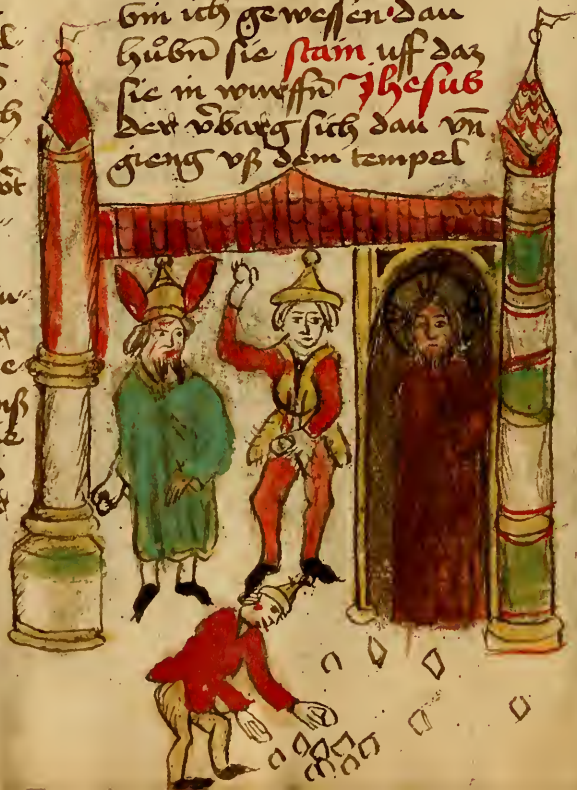 bin ich gewessen dau
hůbn̄ sie stain uff daz
sie in wurffn̄ Jhesus
der v̄barg sich dau vn̄
gieng vß dem tempel